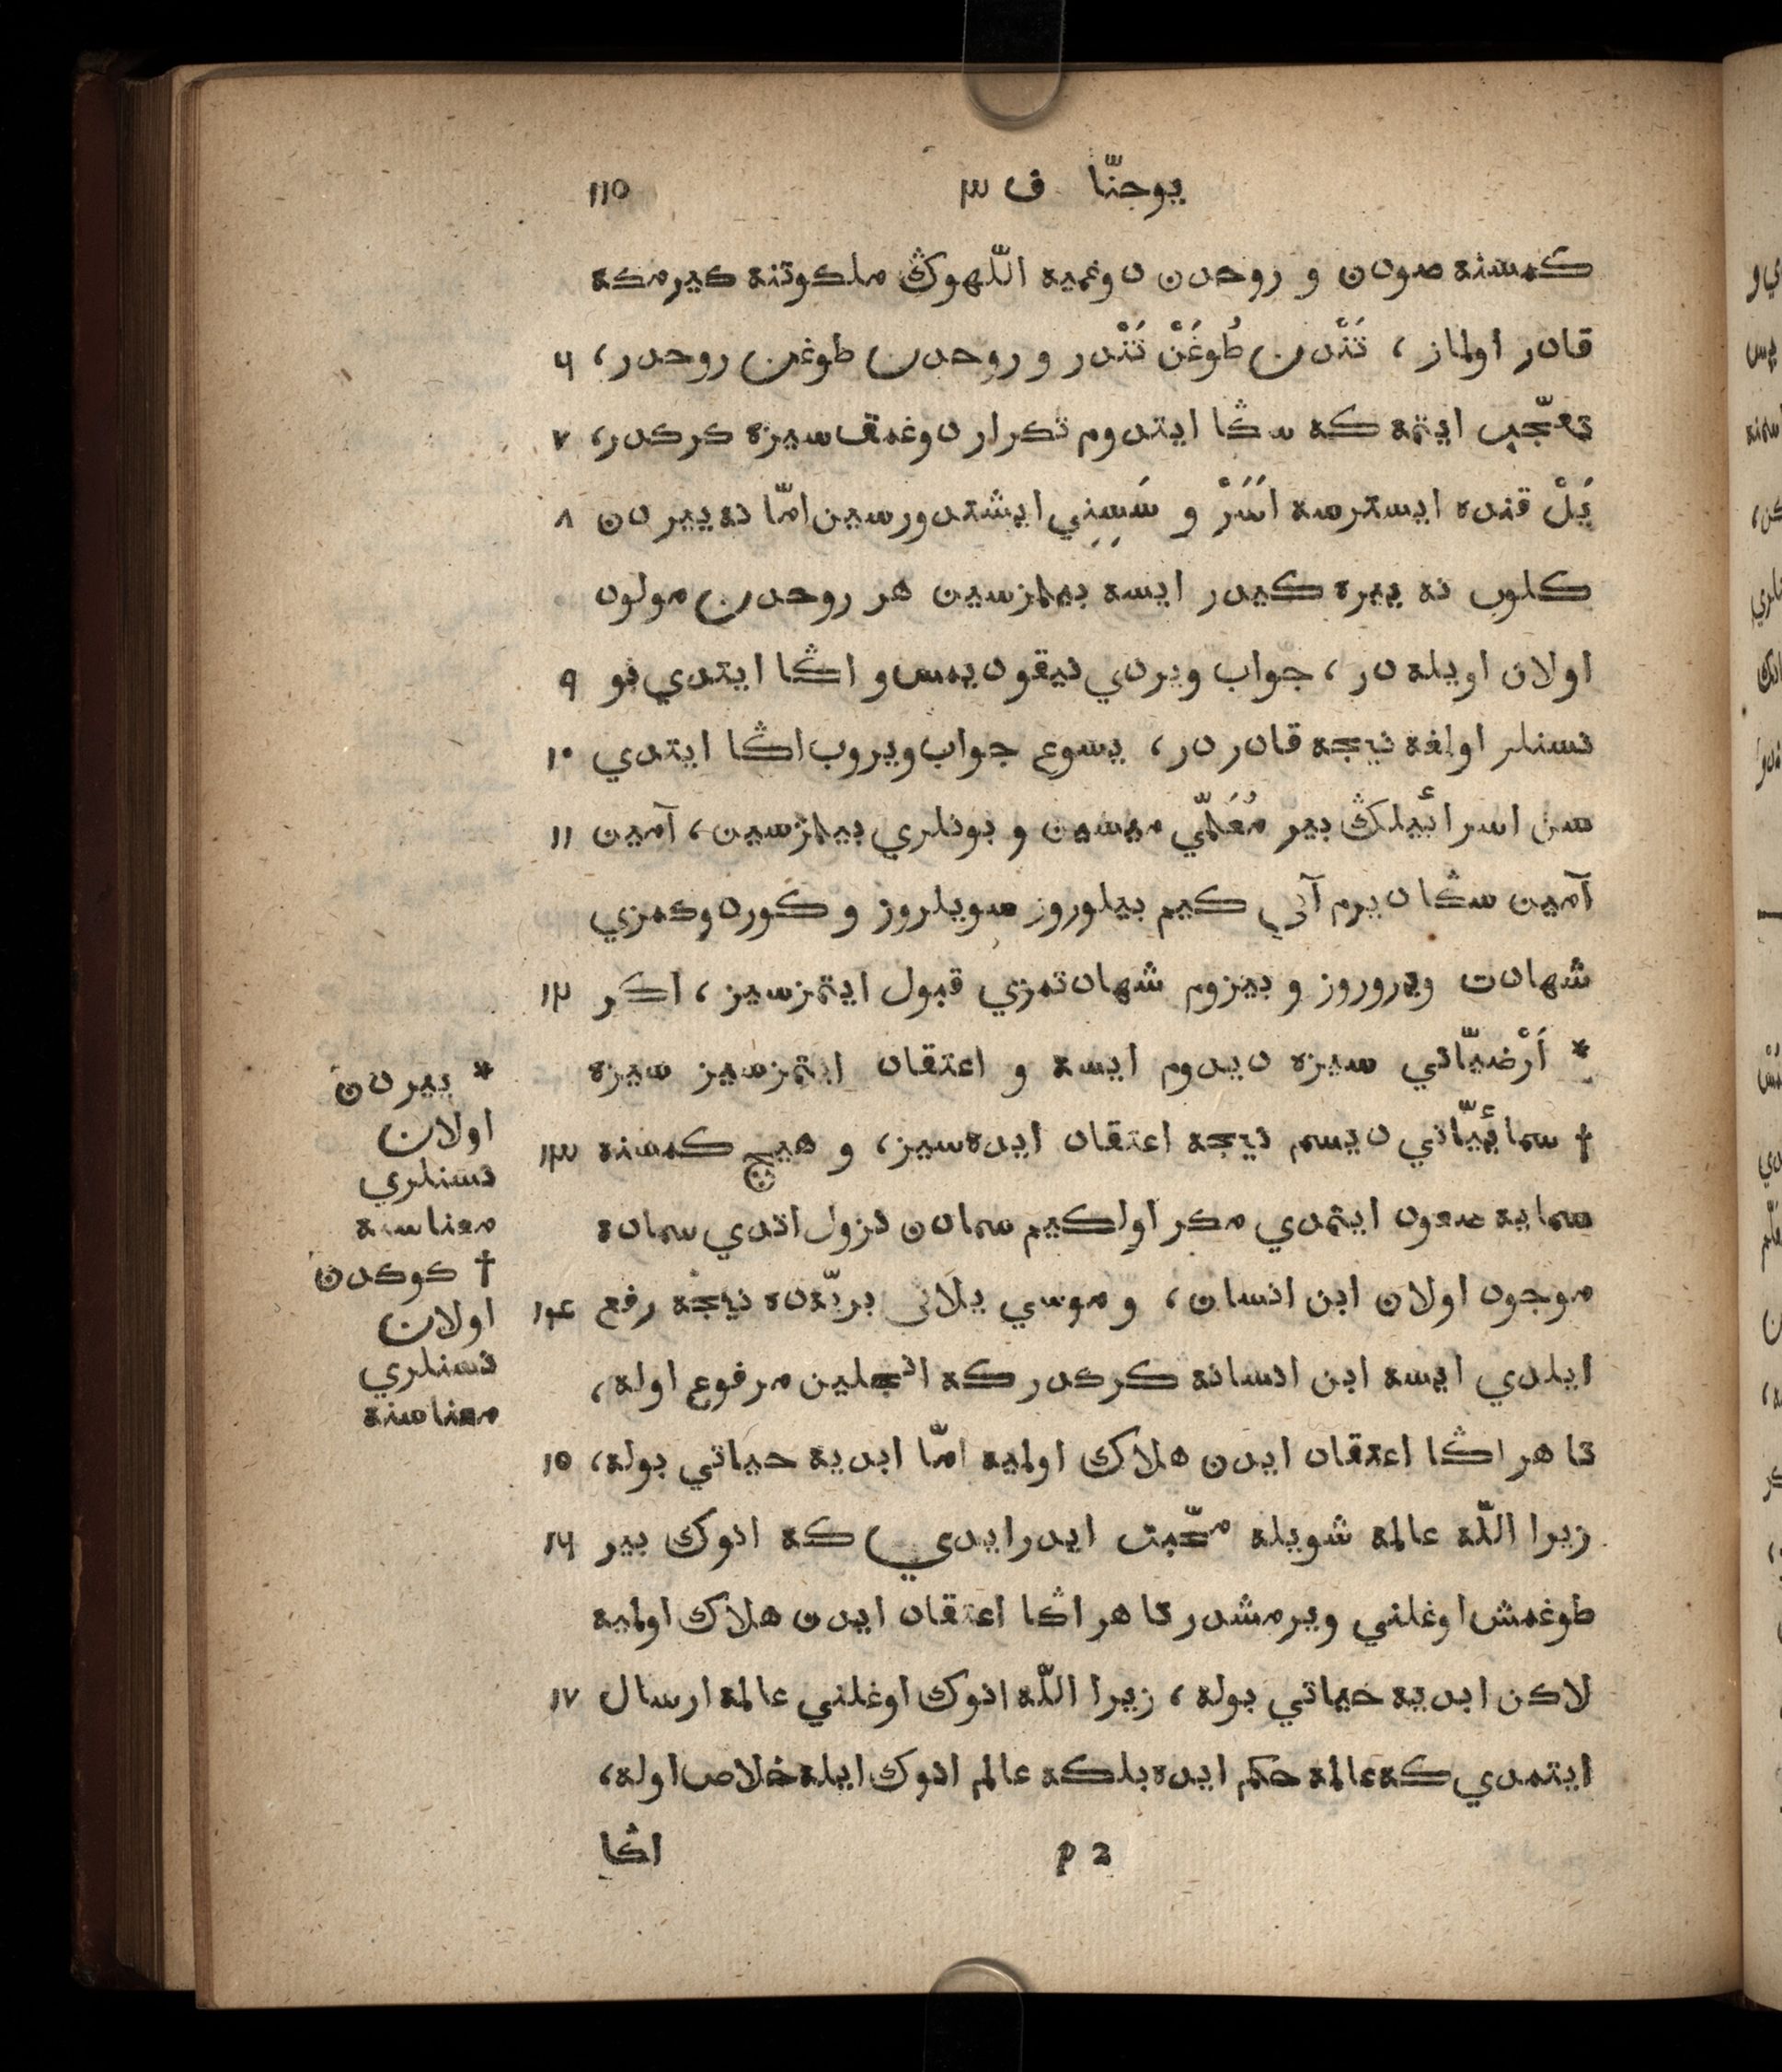 يوحنّا ف ٣ ١١٥
كمسنه صودن و روحدن دوغميه اللّهوڭ ملكوتنه كيرمكه
قادر اولماز، تَنْدن طُوغَنْ تَنْدر و روحدن طوغن روحدر، ٦
تعجّب ايتمه كه سڭا ايتدوم تكرار دوغمق سيزه كركدر، ٧
يَلْ قنده ايسترسه اَسَرْ و سَسِنِي ايشتدورسين امّا نه ييردن ٨
كلوب نه ييره كيدر ايسه بيلمزسين هر روحدن مولود
اولان اويله در، جواب ويردي نيقوديمس و اڭا ايتدي بو ٩
نسنلر اولمغه نيجه قادر در، يسوع جواب ويروب اڭا ايتدي ١٠
سن اسرائيلڭ بير مُعَلّمي ميسين و بونلري بيلمزسين، آمين ١١
آمين سڭا ديرم آني كيم بيلوروز سويلروز و كوردوكمزي
شهادت ويروروز و بيزوم شهادتمزي قبول ايتمزسيز، اكر ١٢
* اَرْضيّاتي سيزه ديدوم ايسه و اعتقاد ايتمزسيز سيزه
† سمائيّاتي ديسم نيجه اعتقاد ايده سيز، و هيچ كمسنه ١٣
سمايه صعود ايتمدي مكر اول كيم سمادن نزول اتدي سماده
موجود اولان ابن انسان، و موسي يلاني بريّه ده نيجه رفع ١٤
ايلدي ايسه ابن انسانه كركدر كه انجلين مرفوع اوله،
تا هر اڭا اعتقاد ايدن هلاك اولميه امّا ابديه حياتي بوله، ١٥
زيرا اللّه عالمه شويله محّبت ايدرايدي كه انوك بير ١٦
طوغمش اوغلني ويرمشدر تا هر اڭا اعتقاد ايدن هلاك اولميه
لاكن ابديه حياتي بوله، زيرا اللّه انوك اوغلني عالمه ارسال ١٧
ايتمدي كه عالمه حكم ايده بلكه عالم انوك ايله خلاص اوله،
P 2 اڭا
* ييردن
اولان
نسنلري
معناسنه
† كوكدن
اولان
نسنلري
معناسنه